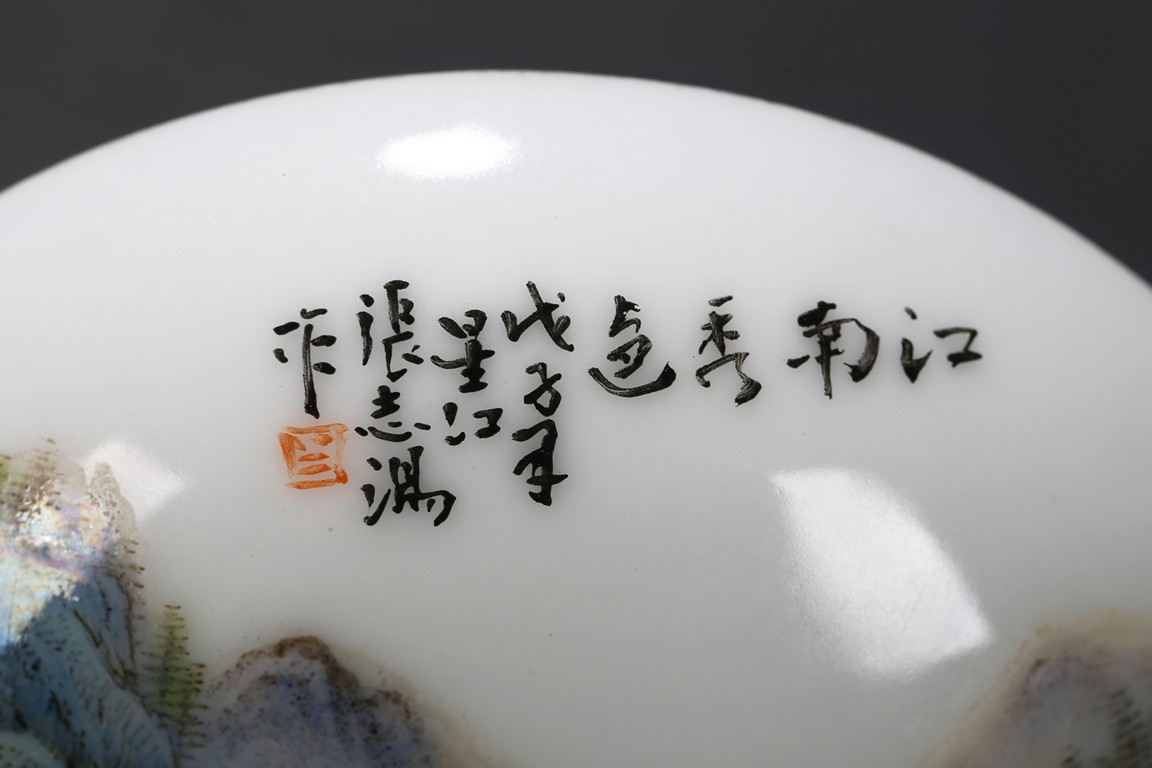 江南秀色
戊子年
星江
張志湯
作